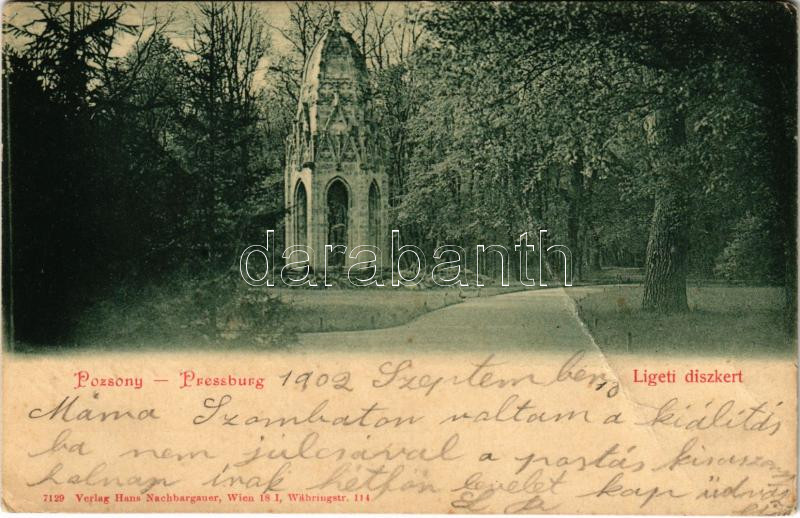 darabanth
Pozsony — Pressburg 1902 Szeptember 10 Ligeti diszkert
Máma Szombaton voltam a kiálitás
ba nem julcsával a postás kisaszony
holnap irok hétfőn levelet kap üdvöz
7129 Verlag Hans Nachbargauer, Wien 18 I, Währingstr. 114